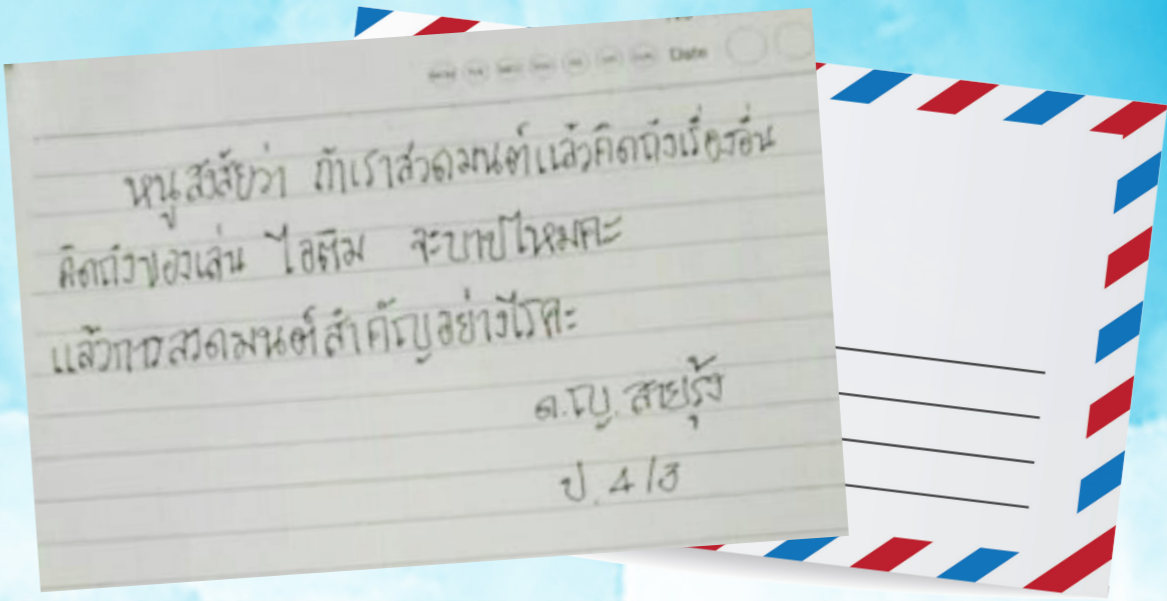 Date
หนูสงสัยว่า ถ้าเราสวดมนต์แล้วคิดถึงเรื่องอื่น
คิดถึงของเล่น ไอติม จะบาปไหมคะ
แล้วการสวดมนต์สำคัญอย่างไรคะ
ด.ญ. สายรุ้ง
ป. 4/3